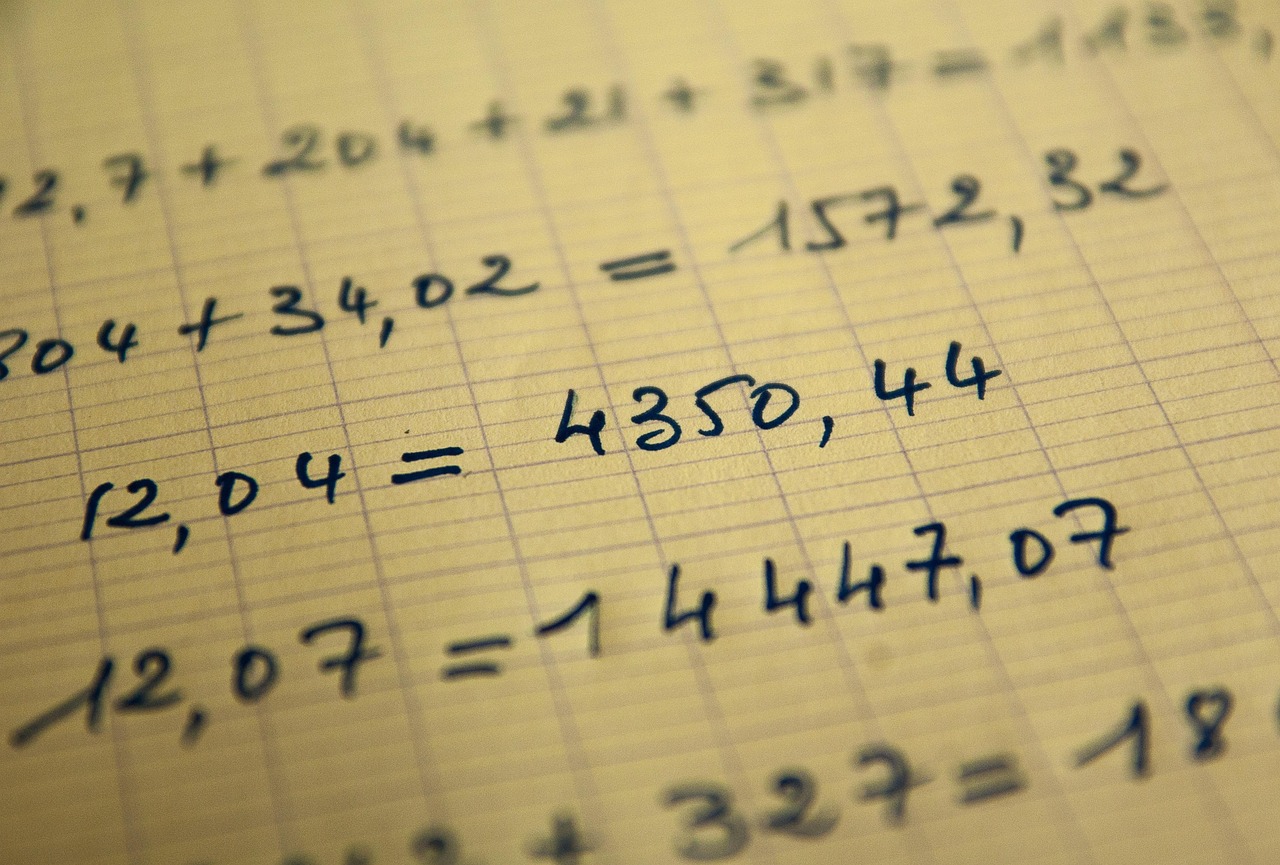 2,7 + 204 + 21 + 317 = 1133,
304 + 34,02 = 1572,32
12,04 = 4350,44
12,07 = 14447,07
+ 327 = 18